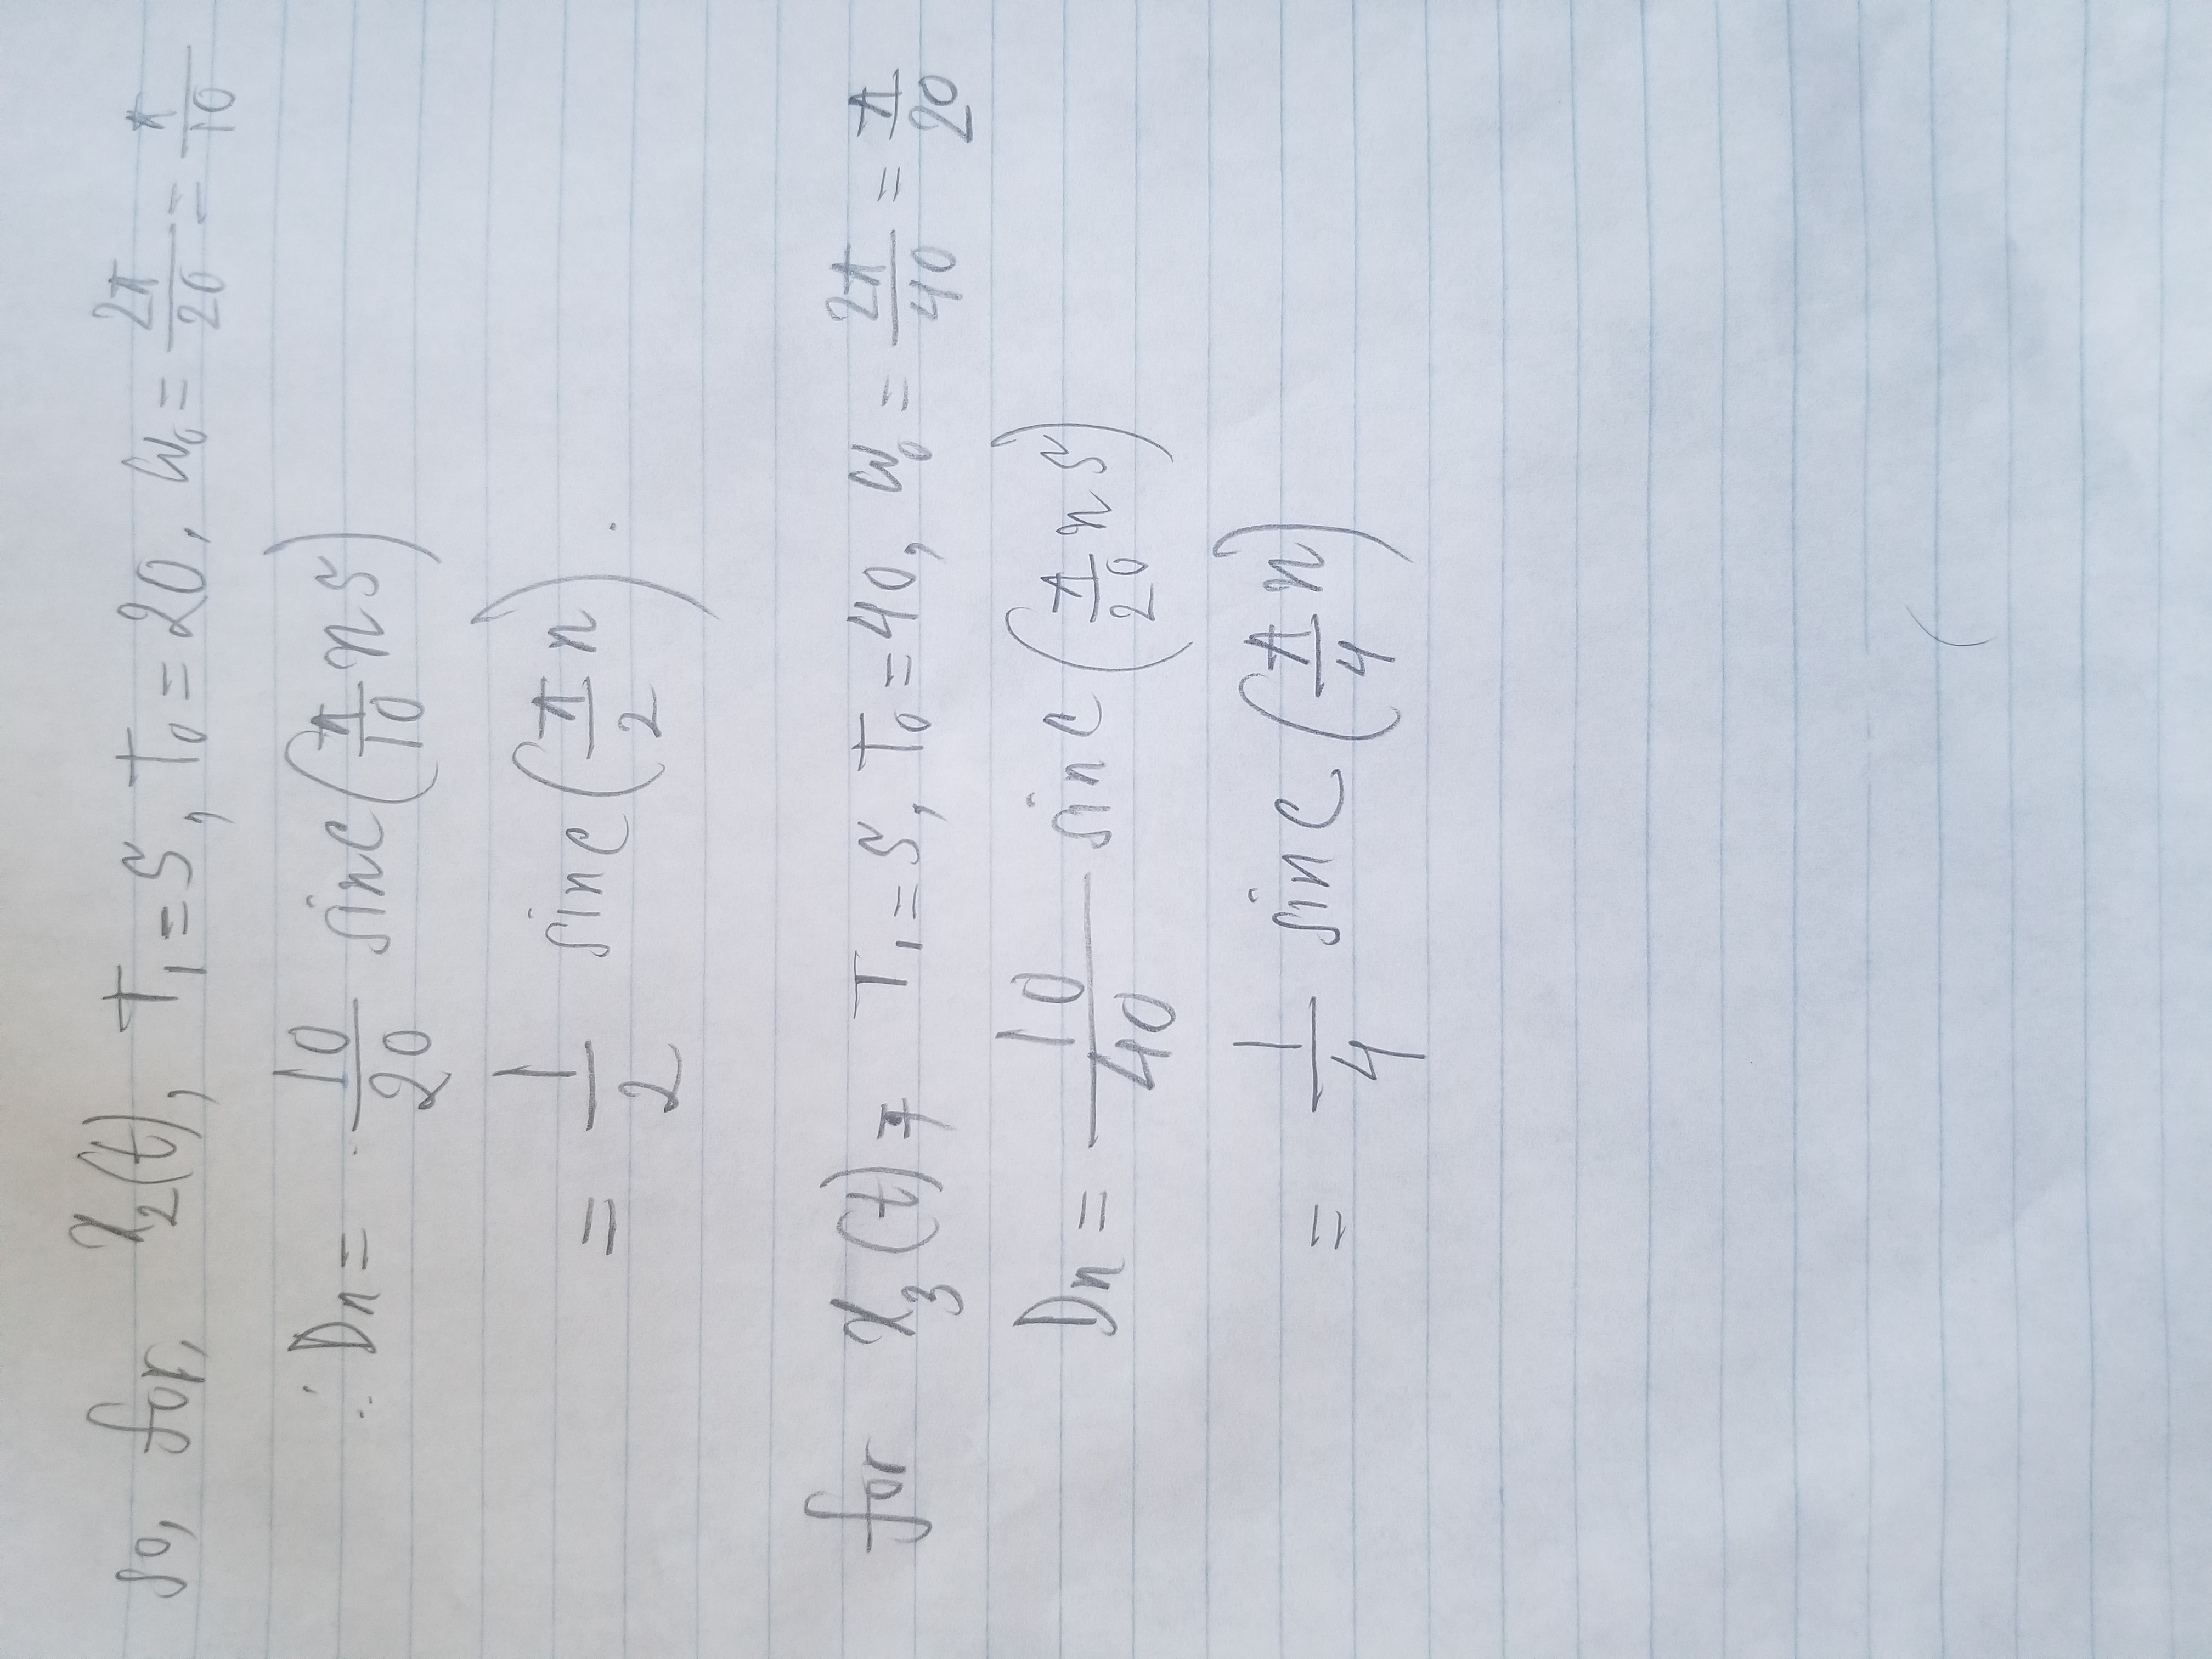 so, for, x₂(t), T₁ = 5, T₀ = 20, ω₀ = 2π/20 = π/10
∴ Dn = 10/20 sinc(π/10 n5)
= 1/2 sinc(π/2 n).
for x₃(t), T₁ = 5, T₀ = 40, ω₀ = 2π/40 = π/20
Dn = 10/40 sinc(π/20 n5)
= 1/4 sinc(π/4 n)